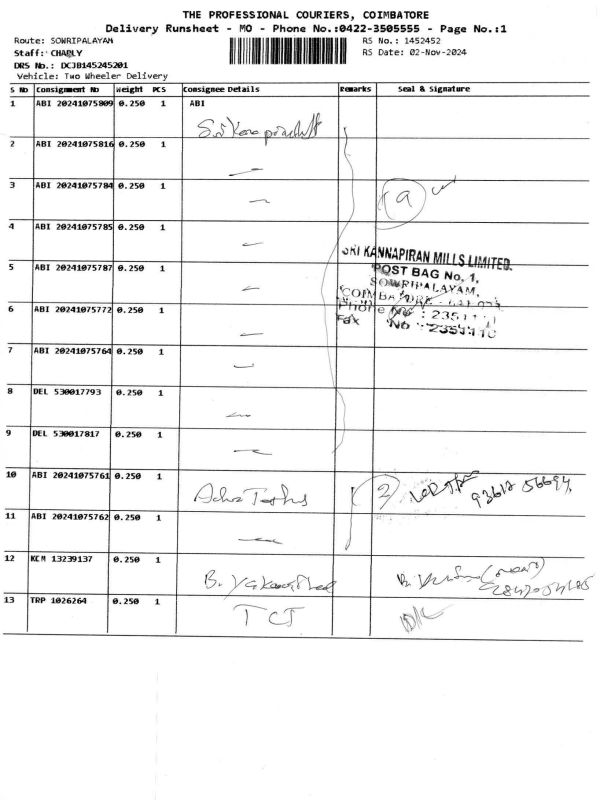 THE PROFESSIONAL COURIERS, COIMBATORE
Delivery Runsheet - MO - Phone No.:0422-3505555 - Page No.:1
Route: SOWRIPALAYAM
RS No.: 1452452
Staff: CHARLY
RS Date: 02-Nov-2024
DRS No.: DCJB145245201
Vehicle: Two Wheeler Delivery
S No Consignment No Weight PCS Consignee Details Remarks Seal & Signature
1 ABI 20241075809 0.250 1 ABI
2 ABI 20241075816 0.250 1
3 ABI 20241075784 0.250 1
9
4 ABI 20241075785 0.250 1
SRI KANNAPIRAN MILLS LIMITED.
5 ABI 20241075787 0.250 1
POST BAG No, 1,
SOWRIPALAYAM,
6 ABI 20241075772 0.250 1
Phone No : 235111
Fax No : 2351110
7 ABI 20241075764 0.250 1
8 DEL 530017793 0.250 1
9 DEL 530017817 0.250 1
10 ABI 20241075761 0.250 1
2
93612 56694
11 ABI 20241075762 0.250 1
12 KCM 13239137 0.250 1
13 TRP 1026264 0.250 1
TCI